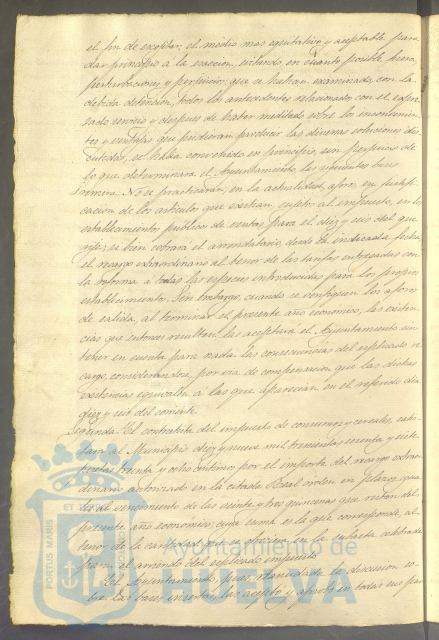 el fin de escojitar el medio mas equitativo y aceptable para
dar principio á la exaccion, evitando en cuanto posible fuera,
perturbaciones y perjuicios: que se habian examinado, con la
debida detencion, todos los antecedentes relacionados con el espre-
sado servicio y despues de haber meditado sobre los inconvenien-
tes y ventajas que pudieran producir las diversas soluciones dis-
cutidas, se habia convenido en principio, sin perjuicio de
lo que determinara el Ayuntamiento, las siguientes bases
Primera. No se practicarán, en la actualidad, aforos en justifi-
cacion de los articulos que existian, sujetos al impuesto, en los
establecimientos publicos de ventas para el diez y seis del que
rije; si bien cobrará el arrendatario, desde la indicada fecha
el recargo extraordinario al tenor de las tarifas entregadas con
la reforma á todas las especies introducidas para los propios
establecimientos. Sin embargo cuando se verifiquen los aforos
de salida, al terminar el presente año economico, las existen-
cias que entonces resulten las aceptará el Ayuntamiento sin
tener en cuenta para nada las consecuencias del esplicado re-
cargo, considerandose, por via de compensacion que las dichas
existencias equivalen á las que aparecian en el referido dia
diez y seis del corriente.
Segunda. El contratista del impuesto de consumos y cereales, satis-
fará al Municipio diez y nueve mil trescientas sesenta y siete
pesetas treinta y ocho centimos por el importe del recargo extraor-
dinario autorizado en la citada Real orden en plazos igua-
les al vencimiento de las veinte y tres quincenas que restan del
presente año economico; cuya suma es la que corresponde al
tenor de la cantidad que se ofreció en la subasta celebrada
para el arriendo del esplicado impuesto.
El Ayuntamiento, pues, reanudada la discusion so-
bre las bases insertas las aceptó y aprobó en todas sus par
PORTUS MARIS
ET
Ayuntamiento de
HUELVA